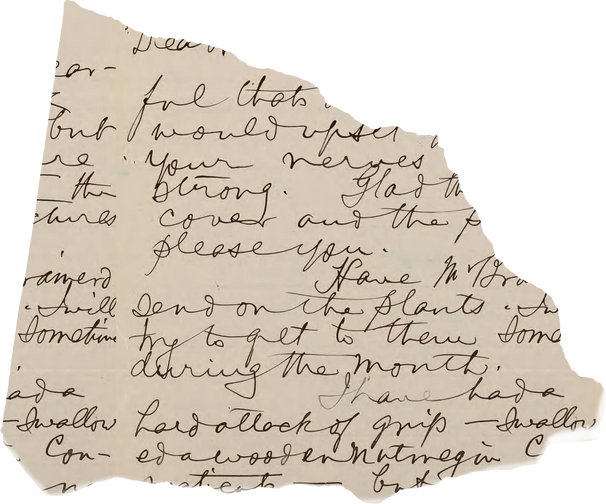 Dear
ear-
ful thats
but would upset
re your nerves
the strong. Glad th
ctures cover and the p
please you.
rainerd Have Mr Bra
. I will send on the plants . I w
Sometime try to get to them Some
during the month.
ad a I have had a
-Swallow hard attack of grip - Swallow
Con- ed a wooden Nutmeg in C
but